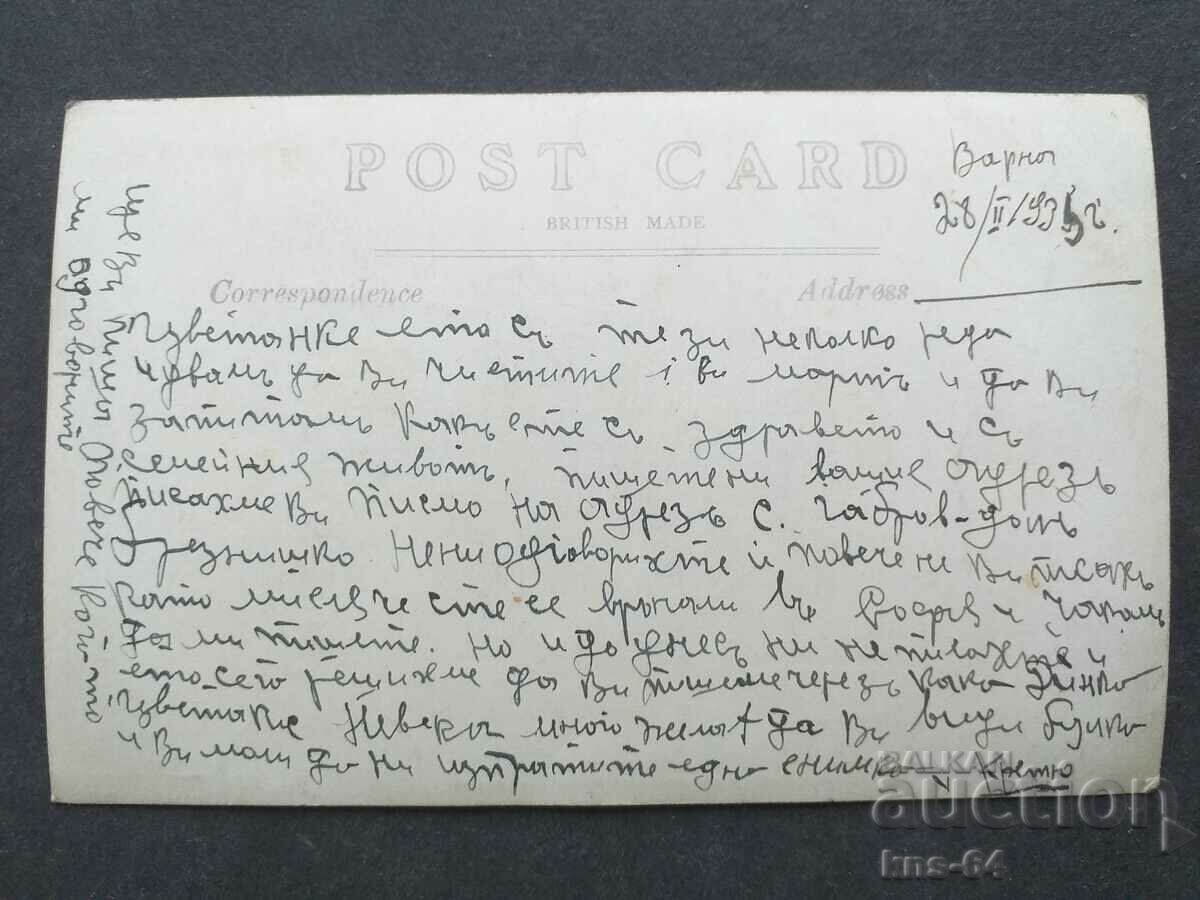 POST CARD
BRITISH MADE
Correspondence
Address
Варна
28/II/935 г.
Цветанке ето съ тези неколко реда
да Ви честите 1 ви мартъ и да Ви
запитамъ какъ сте съ здравето и съ
семейния животъ, пишетени вашие адрезъ
писахмеви писмо на адрезъ с. Габров-долъ
Брезнишко. Нени одговорихте и повече не ви писахъ
като мислех че сте се върнали въ София и чакамъ
да ми пишете. Но и до днесъ ни не писахте и
ето сега решихме да Ви пишеме черезъ кака Динка
Цветанке Невека много желаі да Ви види булка
и Ви моли да ни изпратите една снимка
Кръстю
Ще Ви пиша повече кога-то
ми одговорите
BALKAN
auction
kns-64